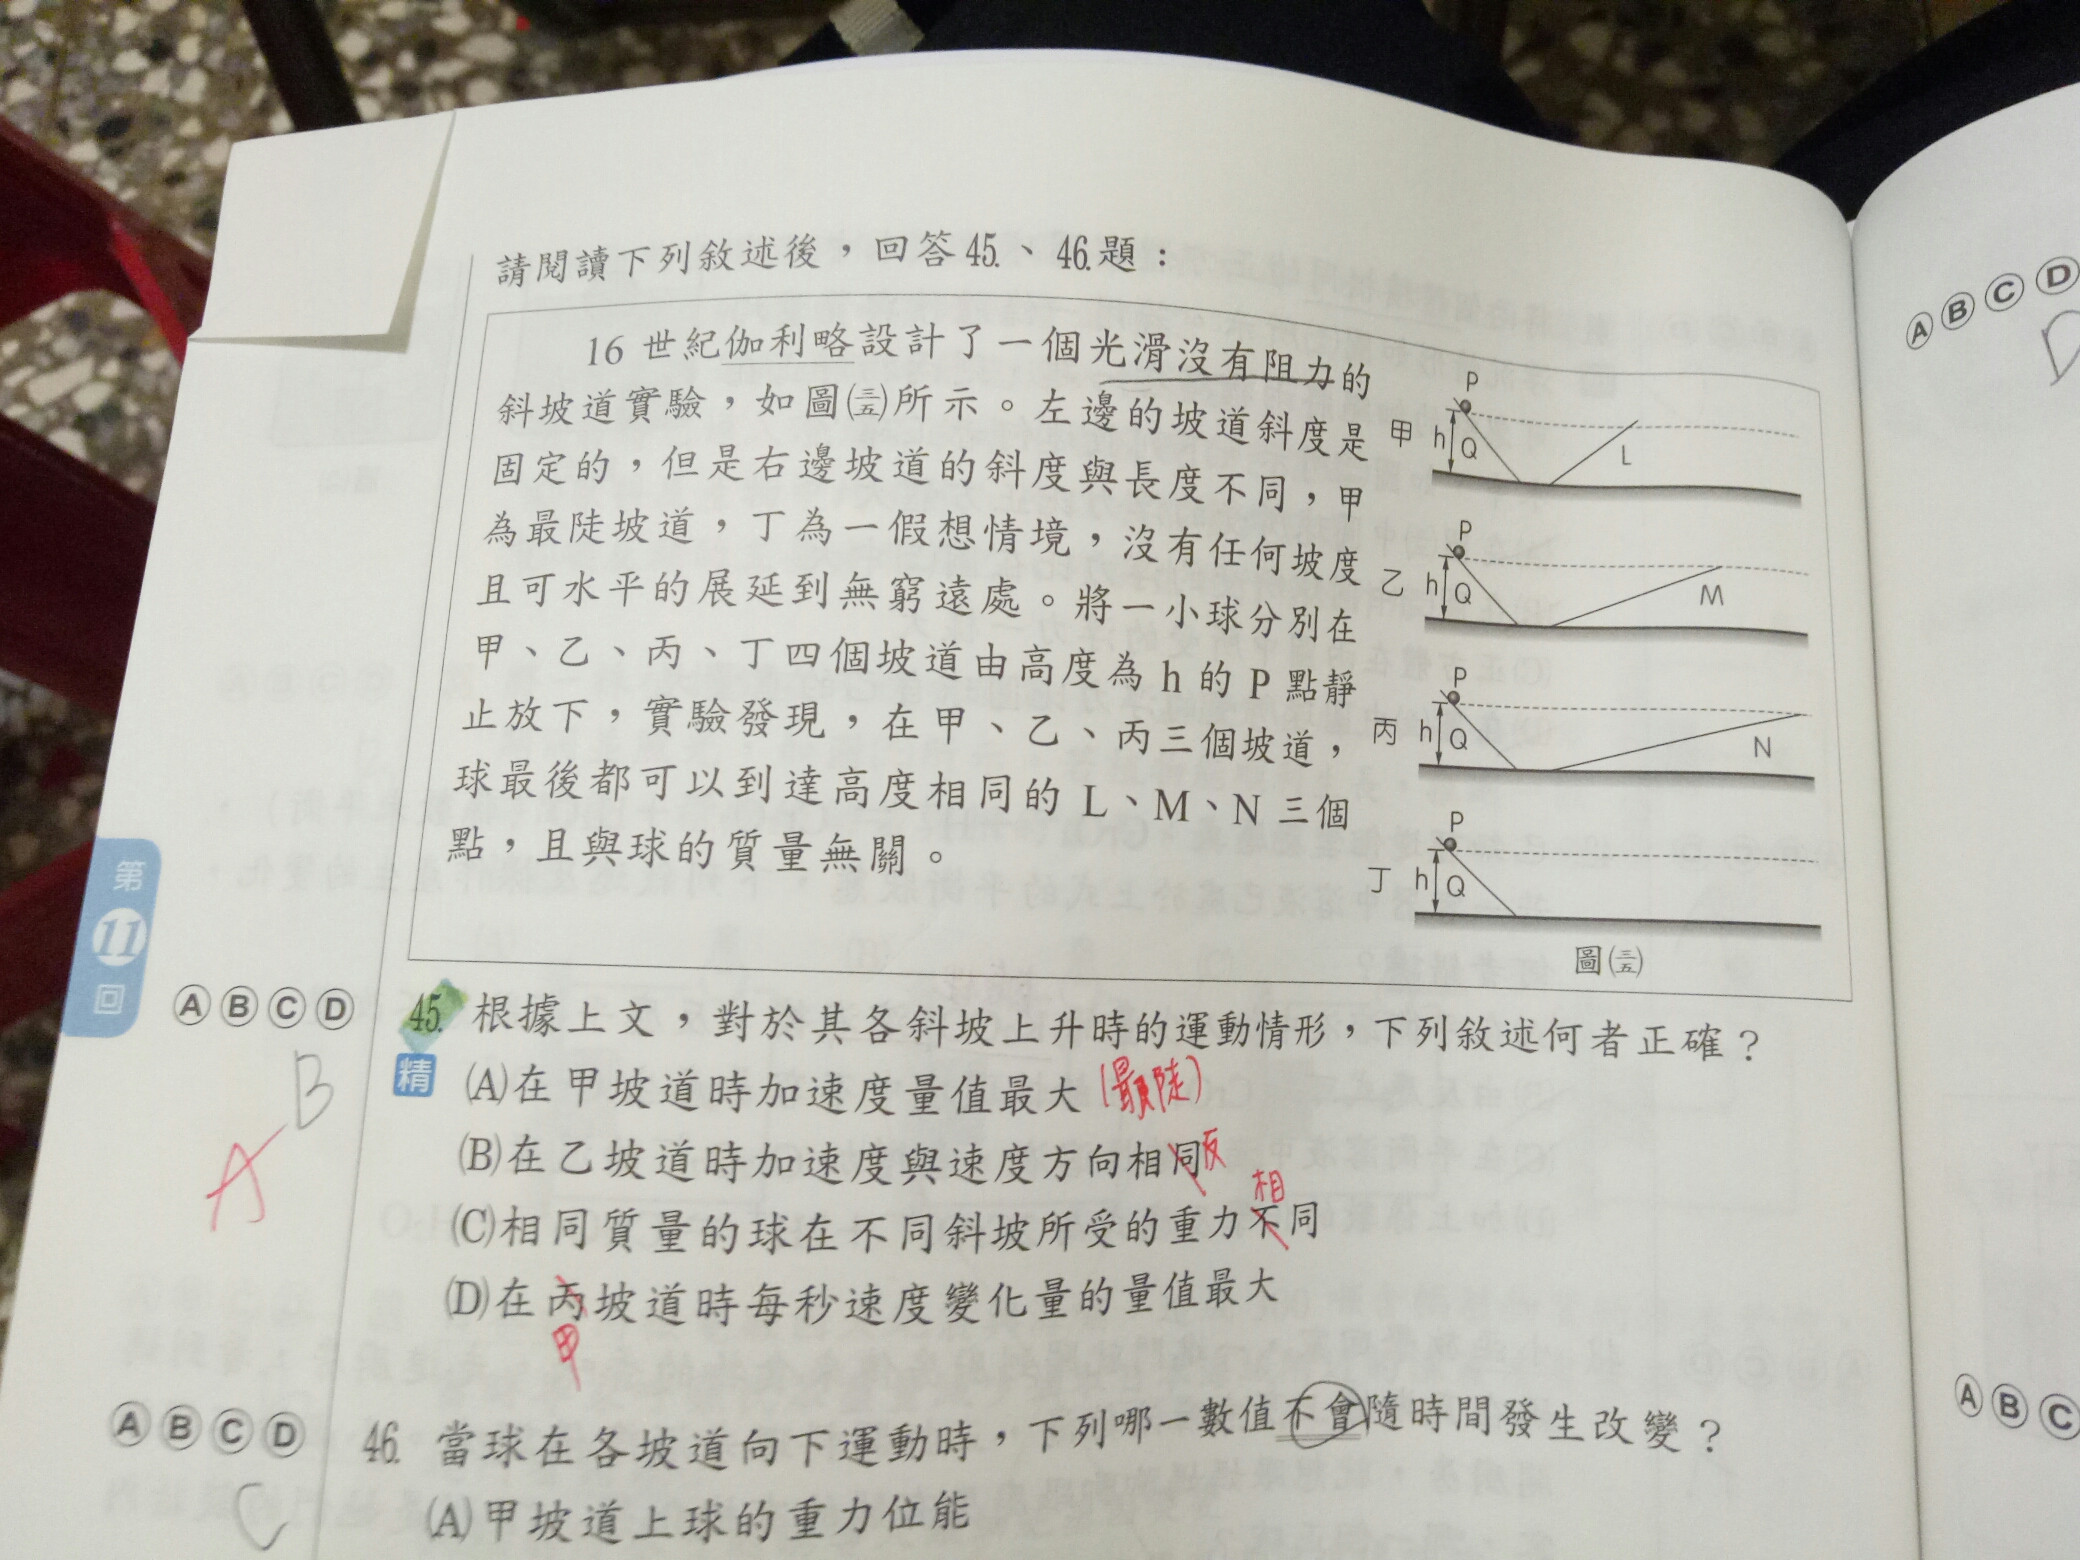 請閱讀下列敘述後，回答45.、46.題：
16 世紀伽利略設計了一個光滑沒有阻力的
斜坡道實驗，如圖(三五)所示。左邊的坡道斜度是
固定的，但是右邊坡道的斜度與長度不同，甲
為最陡坡道，丁為一假想情境，沒有任何坡度
且可水平的展延到無窮遠處。將一小球分別在
甲、乙、丙、丁四個坡道由高度為 h 的 P 點靜
止放下，實驗發現，在甲、乙、丙三個坡道，
球最後都可以到達高度相同的 L、M、N 三個
點，且與球的質量無關。
P
甲 h Q L
P
乙 h Q M
P
丙 h Q N
P
丁 h Q
圖(三五)
第
11
回
Ⓐ Ⓑ Ⓒ Ⓓ
B
A
45. 根據上文，對於其各斜坡上升時的運動情形，下列敘述何者正確？
精
(A)在甲坡道時加速度量值最大 (最陡)
(B)在乙坡道時加速度與速度方向相同 反
(C)相同質量的球在不同斜坡所受的重力不同
相
(D)在丙坡道時每秒速度變化量的量值最大
甲
Ⓐ Ⓑ Ⓒ Ⓓ
C
46. 當球在各坡道向下運動時，下列哪一數值不會隨時間發生改變？
(A)甲坡道上球的重力位能
Ⓐ Ⓑ Ⓒ Ⓓ
D
Ⓐ Ⓑ Ⓒ